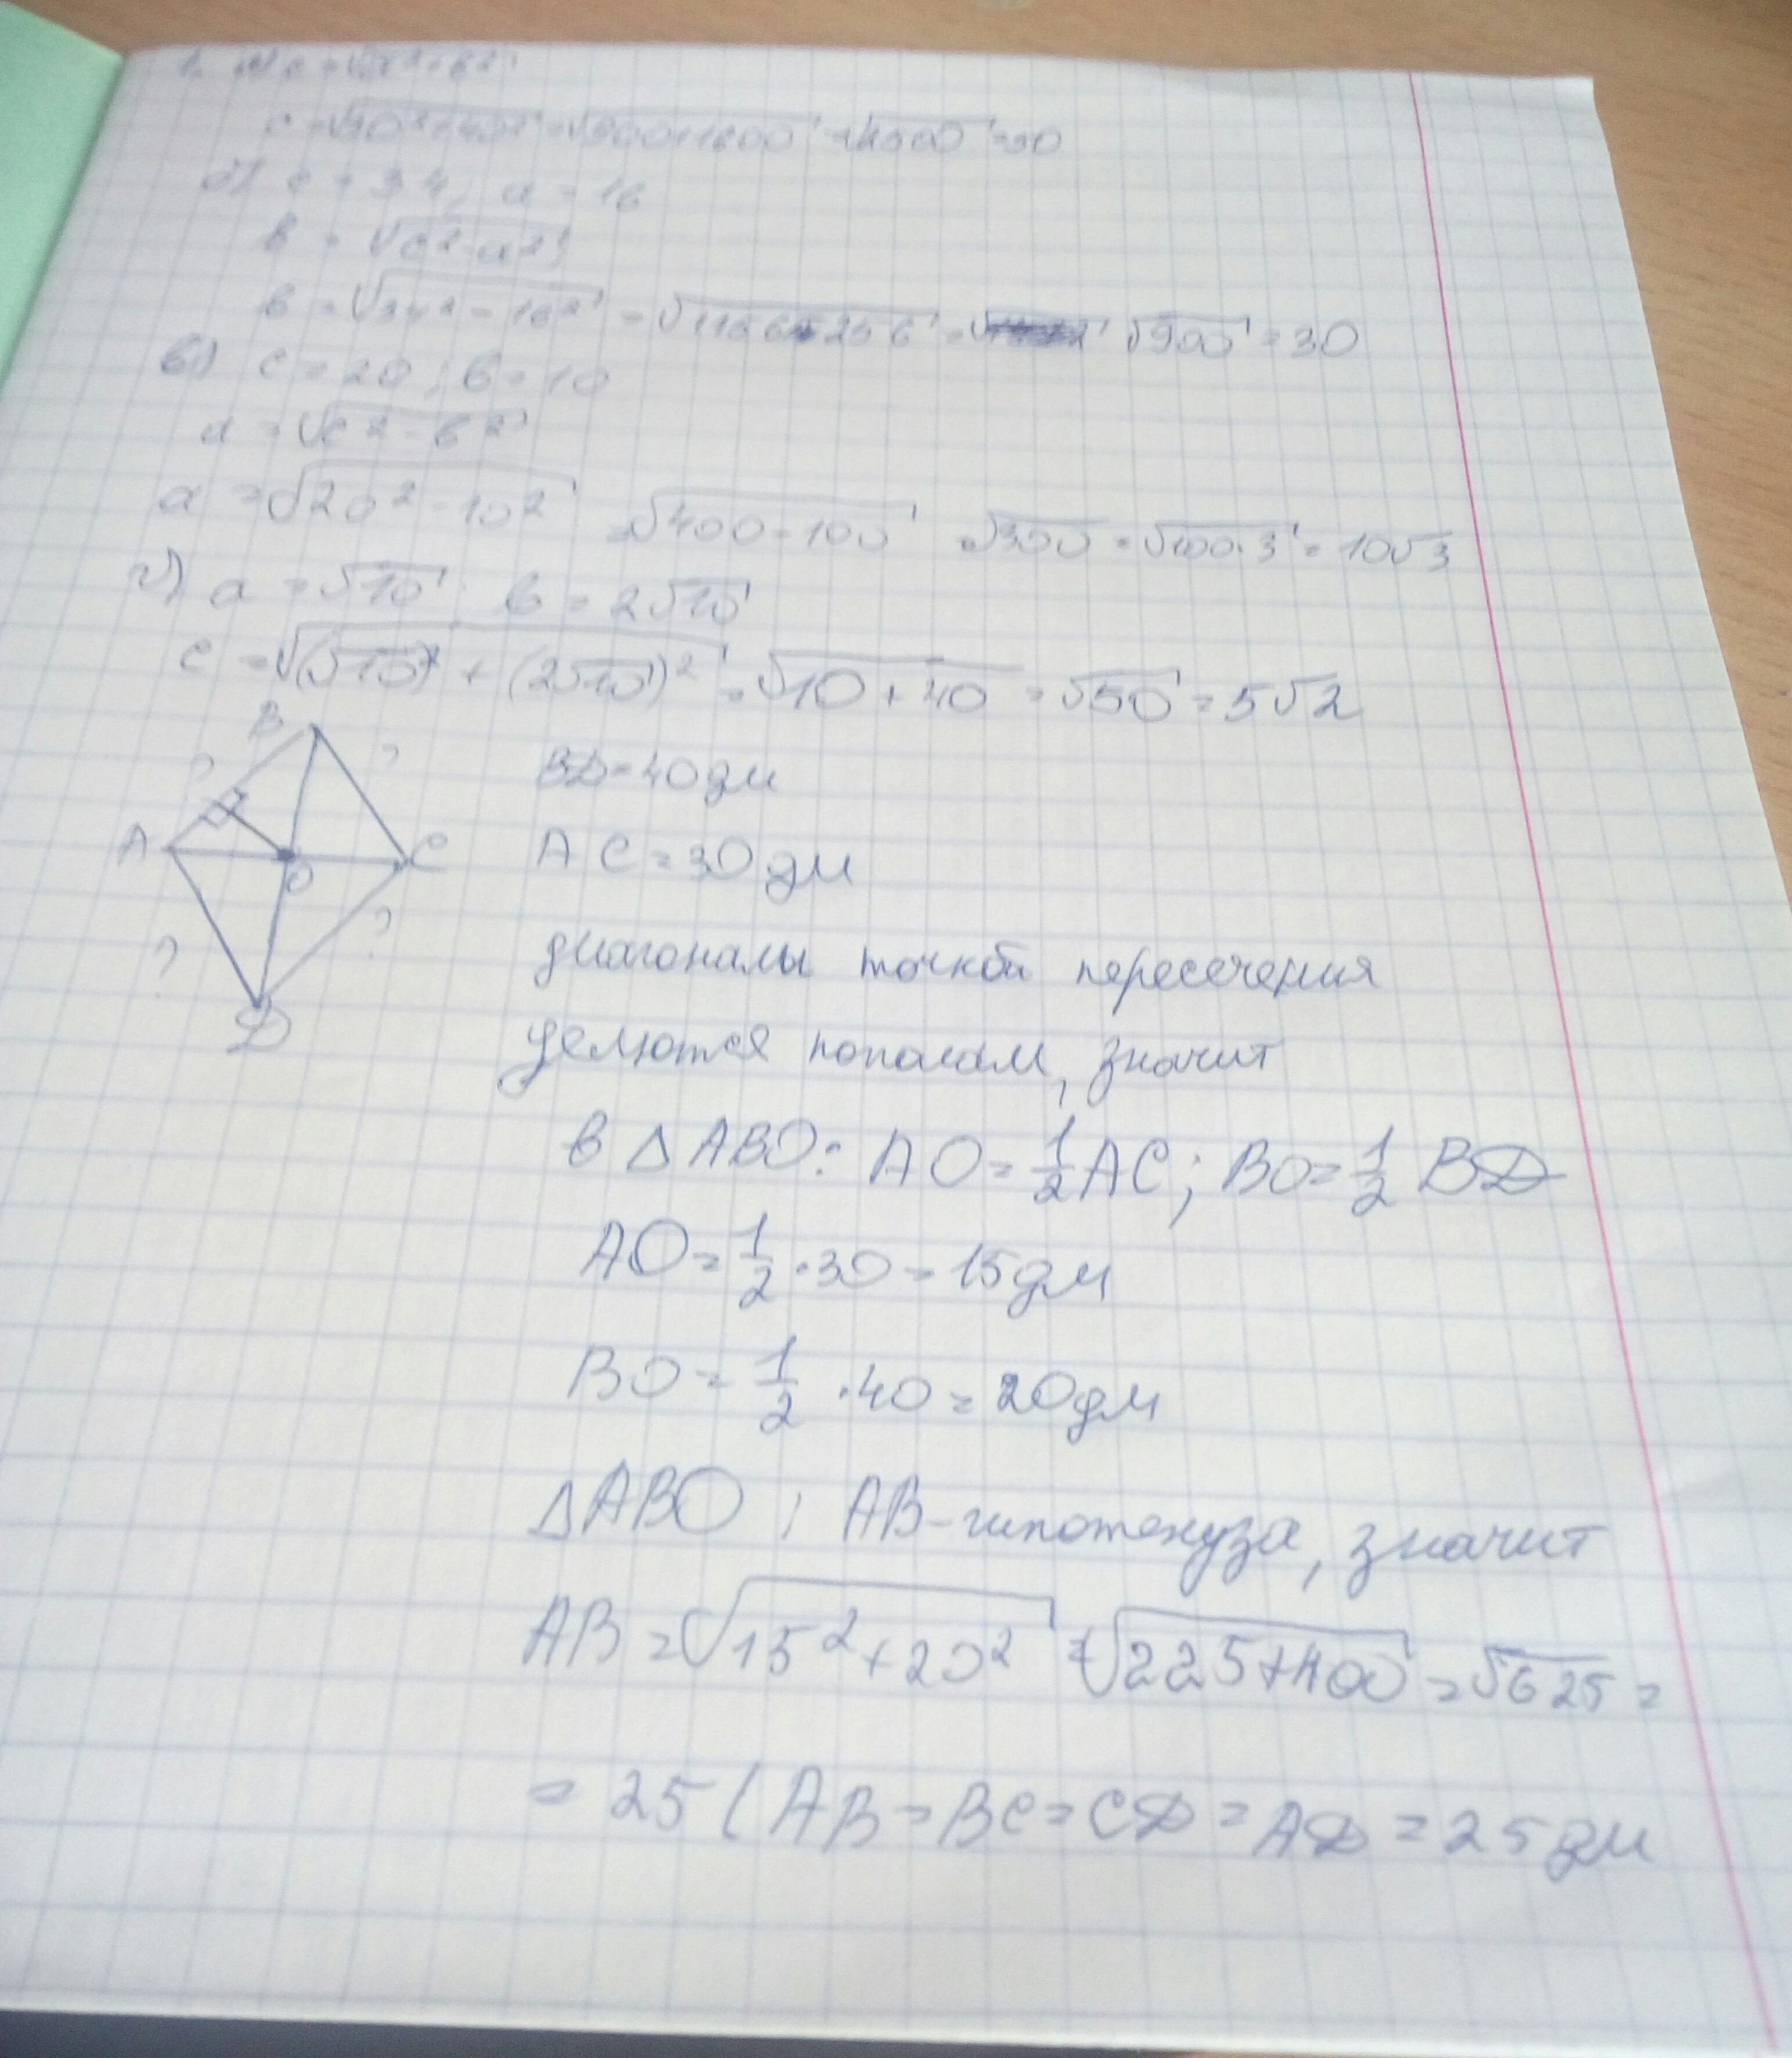 1. а) c = √a² + b²
c = √30² + 40² = √900+1600 = √2500 = 50
б) c = 34; a = 16
b = √c² - a²
b = √34² - 16² = √1156 - 256 = √900 = 30
в) c = 20; b = 10
a = √c² - b²
a = √20² - 10² = √400 - 100 = √300 = √100·3 = 10√3
г) a = √10; b = 2√10
c = √(√10)² + (2√10)² = √10 + 40 = √50 = 5√2
B ? ?
A O C
? ?
D
BD = 40 дм
AC = 30 дм
диагонали точкой пересечения
делются пополам, значит
в △ ABO: AO = 1/2 AC; BO = 1/2 BD
AO = 1/2 · 30 = 15 дм
BO = 1/2 · 40 = 20 дм
△ABO; AB - гипотенуза, значит
AB = √15² + 20² = √225+400 = √625 =
= 25 (AB = BC = CD = AD = 25 дм